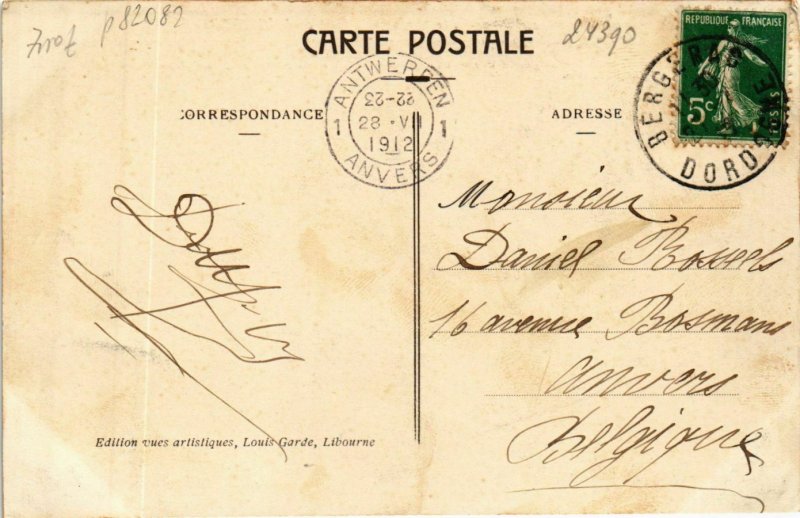 p82082
24390
CARTE POSTALE
CORRESPONDANCE
ADRESSE
ANTWERPEN
22-23
1 28 · VII 1
1912
ANVERS
REPUBLIQUE FRANÇAISE
5c
POSTES
BERGERAC
DORDOGNE
Monsieur
Daniel Rossels
16 avenue Bosmans
Anvers
Belgique
Edition vues artistiques, Louis Garde, Libourne